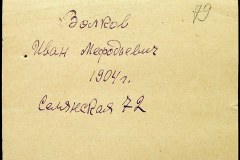 79
Волков
Иван Мефодьевич
1904 г.
Семянская 72